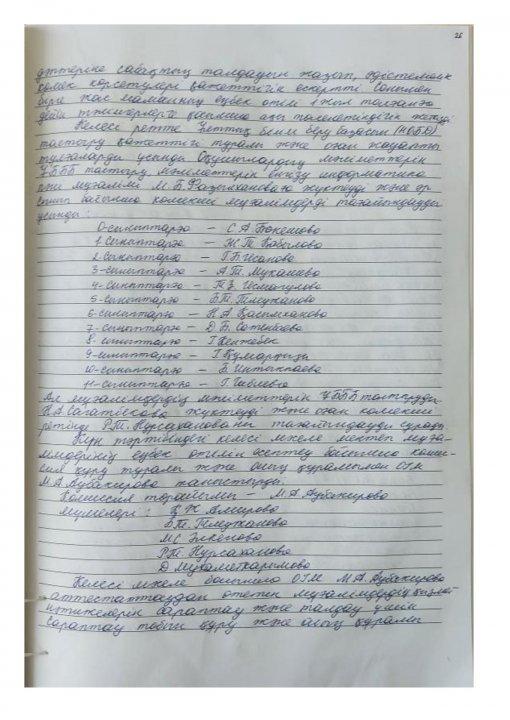 26
діттеріне сабақтың талдауын жазып, әдістемелік
көмек көрсетулері қажеттігін ескертті Сонымен
бірге жас маманның еңбек өтілі 1 жыл толғанға
дейін
Келесі ретте Ұлттық білім беру базасын (НОБД)
толтыру қажеттігі туралы және оған жауапты
тұлғаларды ұсынды Оқушылардың мәліметтерін
ҰБББ толтыру мәліметтерін енгізу информатика
пән мұғалімі М.Б. Фазылхановаға жүктеуді және әр
сынып бойынша көмекші мұғалімдерді тағайындауды
ұсынды:
0-сыныптарға – С А Бокешова
1 Сыныптарға – Ж Т Кабылова
2 Сыныптарға – Г Б Исанова
3-сыныптарға – А Т Мукашева
4-сыныптарға – Т З Исмагулова
5-сыныптарға – Б Т Тлеужанова
6-сыныптарға – Н А Қасымханова
7-сыныптарға – Д Б
8-сыныптарға – Г Кенжебек
9-сыныптарға – Г Құмарғазы
10-сыныптарға – Б Ынтықпаева
11-сыныптарға – Г
Ал мұғалімдердің мәліметтерін ҰБББ толтыруды
Н.А. Сағатбековаға жүктеуді және оған көмекші
ретінде Р.Т. Нурсахановы тағайындауды сұрады
Күн тәртібіндегі келесі мәселе мектеп мұға-
лімдерінің еңбек өтілін есептеу бойынша комис-
сия құру туралы және оның құрамымен ОІМ
М.А. Аубакирова таныстырды.
Комиссия төрайымы – М.А. Аубакирова
мүшелері: Қ Ж Амирова
Б Т Тлеужанова
М С
Р Т Нурсаханова
Д Мухаметкаримова
Келесі мәселе бойынша ОІМ М.А. Аубакирова
аттестаттаудан өтетін мұғалімдердің қызмет
нәтижелерін сараптау және талдау үшін
Сараптау тобын құру және оның құрамы